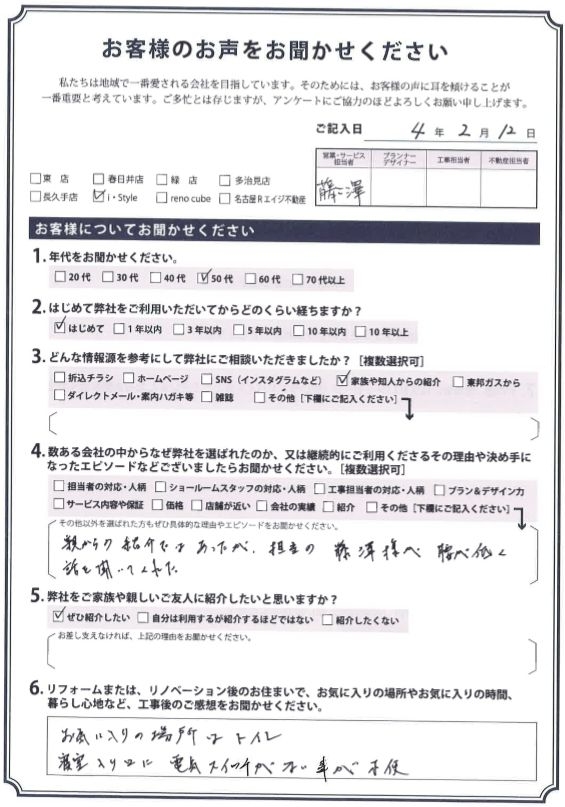 お客様のお声をお聞かせください
私たちは地域で一番愛される会社を目指しています。そのためには、お客様の声に耳を傾けることが
一番重要と考えています。ご多忙とは存じますが、アンケートにご協力のほどよろしくお願い申し上げます。
ご記入日 4 年 2 月 12 日
営業・サービス担当者 プランナーデザイナー 工事担当者 不動産担当者
藤澤
□東 店 □春日井店 □緑 店 □多治見店
□長久手店 ☑i・Style □reno cube □名古屋Rエイジ不動産
お客様についてお聞かせください
1. 年代をお聞かせください。
□20代 □30代 □40代 ☑50代 □60代 □70代以上
2. はじめて弊社をご利用いただいてからどのくらい経ちますか？
☑はじめて □1年以内 □3年以内 □5年以内 □10年以内 □10年以上
3. どんな情報源を参考にして弊社にご相談いただきましたか？［複数選択可］
□折込チラシ □ホームページ □SNS（インスタグラムなど） ☑家族や知人からの紹介 □東邦ガスから
□ダイレクトメール・案内ハガキ等 □雑誌 □その他［下欄にご記入ください］
4. 数ある会社の中からなぜ弊社を選ばれたのか、又は継続的にご利用くださるその理由や決め手に
なったエピソードなどございましたらお聞かせください。［複数選択可］
□担当者の対応・人柄 □ショールームスタッフの対応・人柄 □工事担当者の対応・人柄 □プラン＆デザイン力
□サービス内容や保証 □価格 □店舗が近い □会社の実績 □紹介 □その他［下欄にご記入ください］
その他以外を選ばれた方もぜひ具体的な理由やエピソードをお聞かせください。
親からの紹介ではあったが、担当の 藤澤様が 腰が低く
話を聞いてくれた
5. 弊社をご家族や親しいご友人に紹介したいと思いますか？
☑ぜひ紹介したい □自分は利用するが紹介するほどではない □紹介したくない
お差し支えなければ、上記の理由をお聞かせください。
6. リフォームまたは、リノベーション後のお住まいで、お気に入りの場所やお気に入りの時間、
暮らし心地など、工事後のご感想をお聞かせください。
お気に入りの場所はトイレ
寝室入り口に 電気スイッチがない事が不便